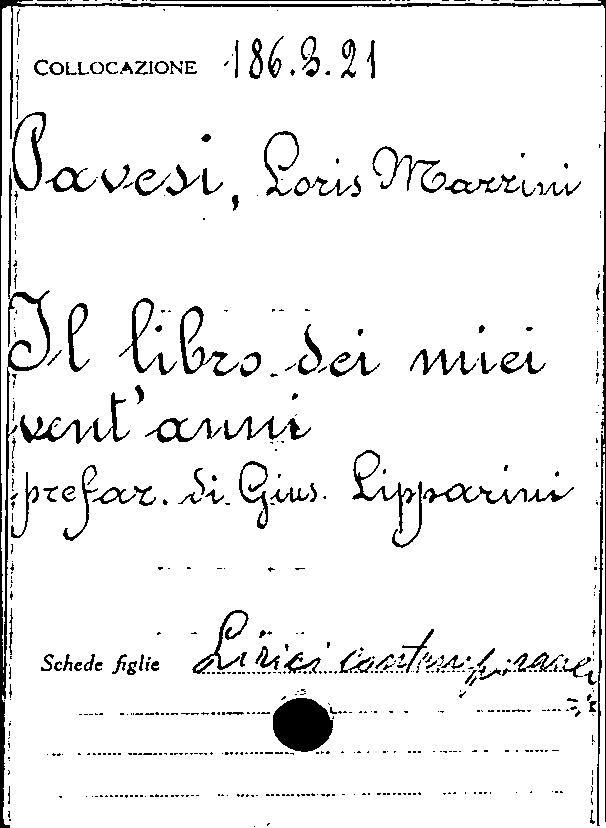 COLLOCAZIONE 186.3.21
Pavesi, Loris Marzini
Il libro dei miei
vent'anni
prefaz. di Gius. Lipparini
Schede figlie Lirici contemporanei